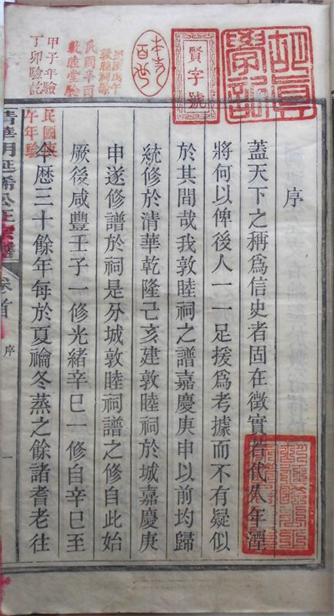 賢字號
本支
百世
甲子年驗
丁卯驗記
民國
午年驗
序
蓋天下之稱爲信史者固在徵實若代久年湮
將何以俾後人一一足援爲考據而不有疑似
於其間哉我敦睦祠之譜嘉慶庚申以前均歸
統修於清華乾隆己亥建敦睦祠於城嘉慶庚
申遂修譜於祠是爲分城敦睦祠譜之修自此始
厥後咸豐壬子一修光緒辛巳一修自辛巳至
今歷三十餘年每於夏禴冬蒸之餘諸耆老往
清華胡
卷首
序
一